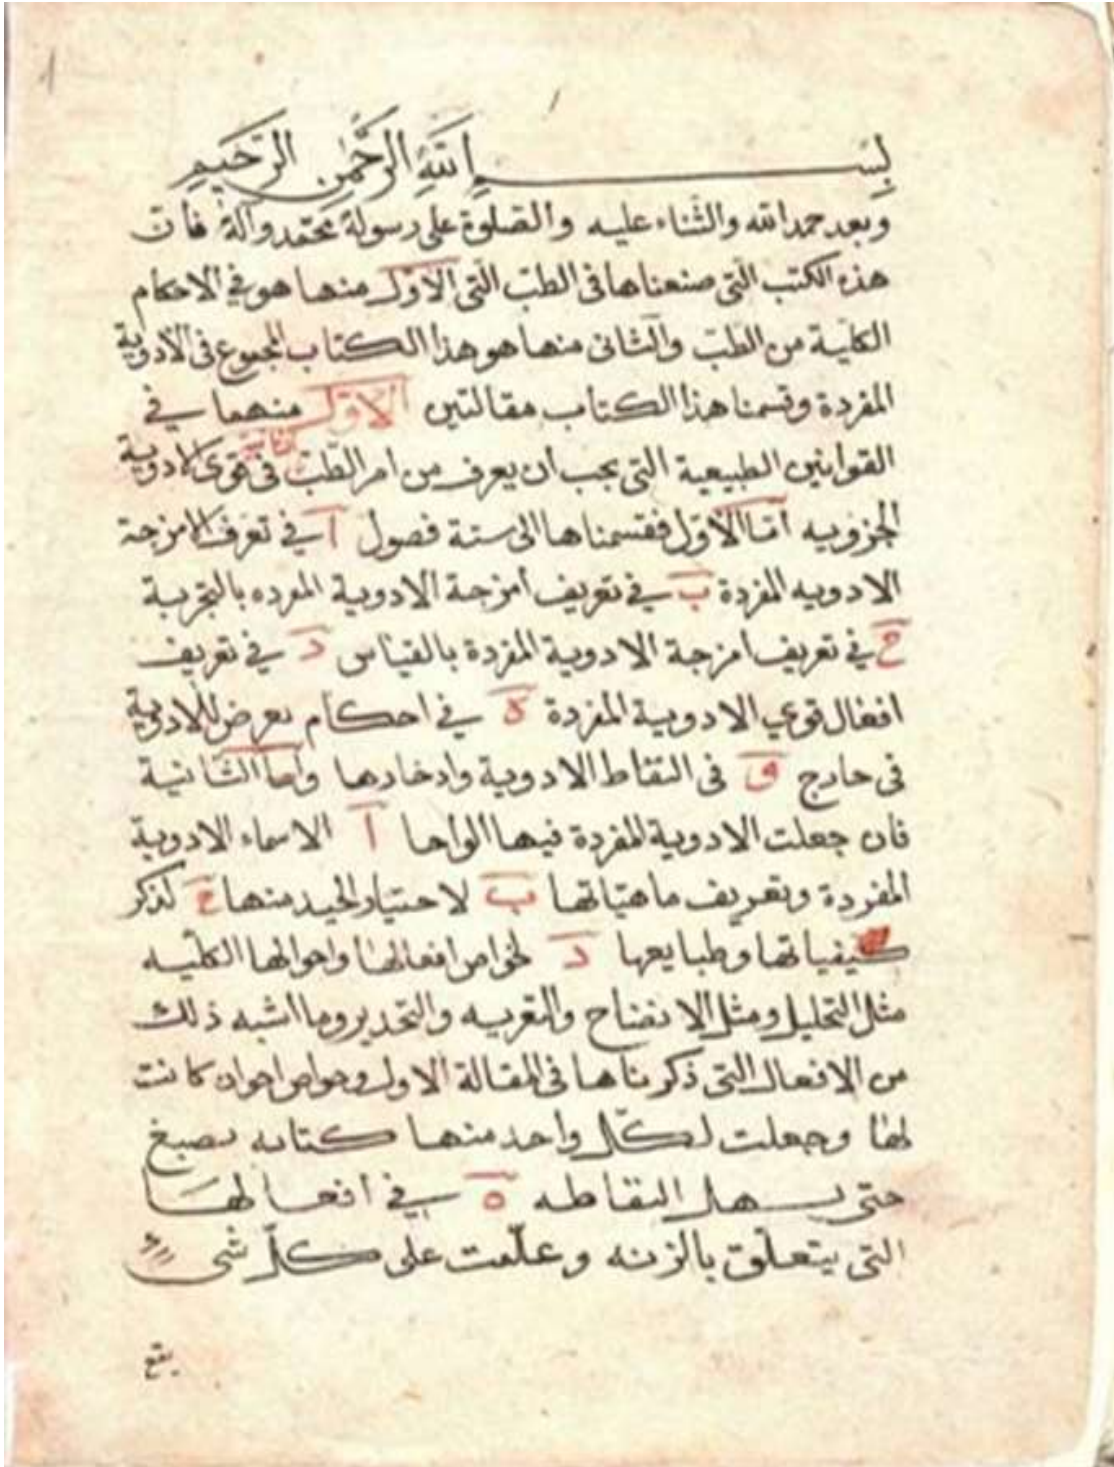 بسم الله الرحمن الرحيم
وبعد حمد الله والثناء عليه والصلوة على رسولة محمد وآلة فان
هذه الكتب التى صنعناها فى الطب التى الاول منها هو في الاحكام
الكلية من الطب والثانى منها هو هذا الكتاب المجموع فى الادوية
المفردة وقسمنا هذا الكتاب مقالتين الاول منهما في
القوانين الطبيعية التى يجب ان يعرف من امر الطب فى قوى الادوية
الجزوييه اما الاول فقسمناها الى ستة فصول ا في تعرف الامزجة
الادويه المفردة ب في تعريف أمزجة الادوية المفرده بالتجربة
ج في تعريف امزجة الادوية المفردة بالقياس د في تعريف
افعال قوي الادوية المفردة ه في احكام يعرض للادوية
فى خارج و فى التقاط الادوية وادخارها واما الثانية
فان جعلت الادوية المفردة فيها الواحا أ الاسماء الادوية
المفردة وتعريف ماهياتها ب لاختيار الجيد منها ج لذكر
كيفياتها وطبايعها د لخواص افعالها واحوالها الكليه
مثل التحليل ومثل الانضاج والتغريه والتخدير وما اشبه ذلك
من الافعال التى ذكرناها فى المقالة الاولى وخواص اخوان كانت
لها وجعلت لكل واحد منها كتابه بصبغ
حتى يسهل التقاطه ه في افعالها
التى يتعلق بالزينه وعلمت على كل شى
يقع